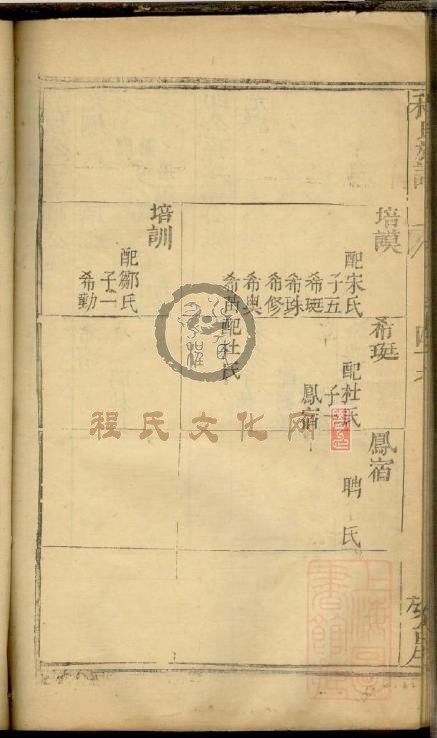 程氏族譜
培謨
配宋氏
子五
希珽
希珠
希修
希輿
希喆配杜氏
培訓
配鄒氏
子一
希勤
希珽
配杜氏
子一
鳳宿
鳳宿
聘 氏
程氏文化网
上海圖書館藏